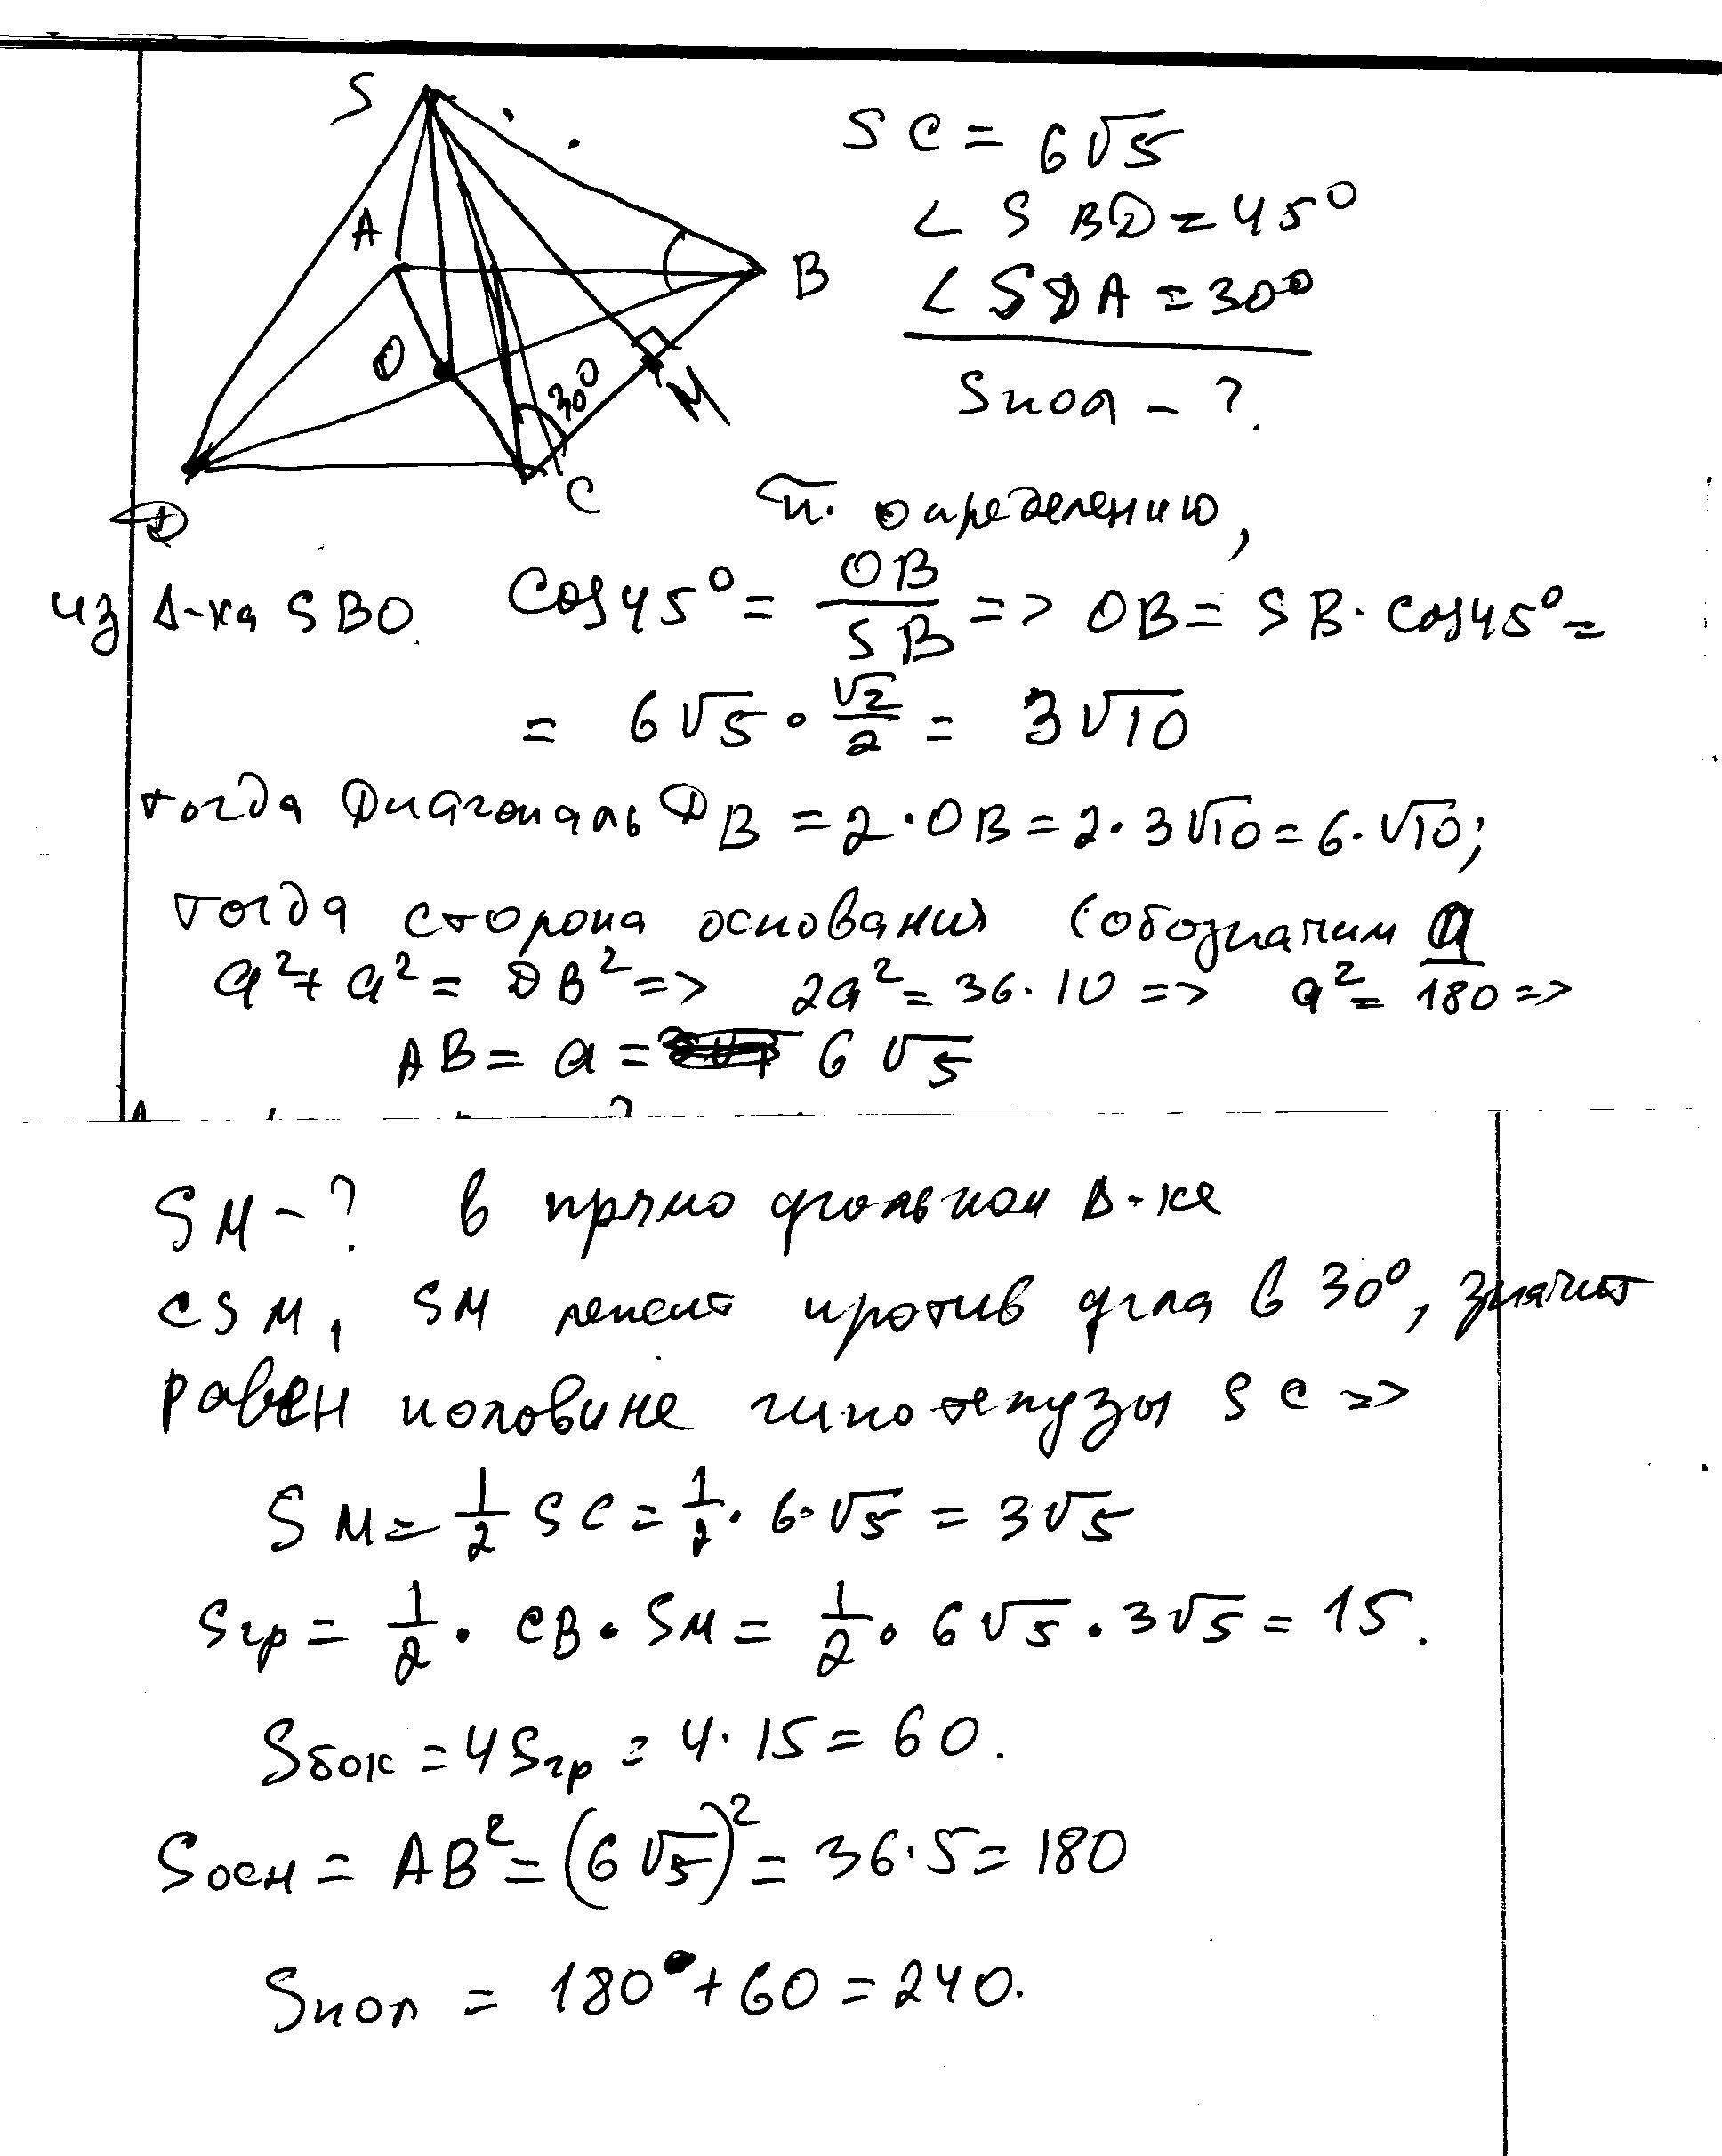 S
A
B
O
30°
M
D
C
SC = 6√5
∠SBD = 45°
∠SDA = 30°
Sпол - ?
п. определению,
из Δ-ка SBO. Cos45° = OB/SB => OB = SB · Cos45° =
= 6√5 · √2/2 = 3√10
тогда Диагональ DB = 2 · OB = 2 · 3√10 = 6 · √10;
тогда сторона основания (обозначим a
a² + a² = DB² => 2a² = 36 · 10 => a² = 180 =>
AB = a = 6√5
SM - ? в прямоугольном Δ-ке
CSM, SM лежит против угла в 30°, значит
равен половине гипотенузы SC =>
SM = 1/2 SC = 1/2 · 6 · √5 = 3√5
Sгр = 1/2 · CB · SM = 1/2 · 6√5 · 3√5 = 15.
Sбок = 4Sгр = 4 · 15 = 60.
Sосн = AB² = (6√5)² = 36 · 5 = 180
Sпол = 180 + 60 = 240.